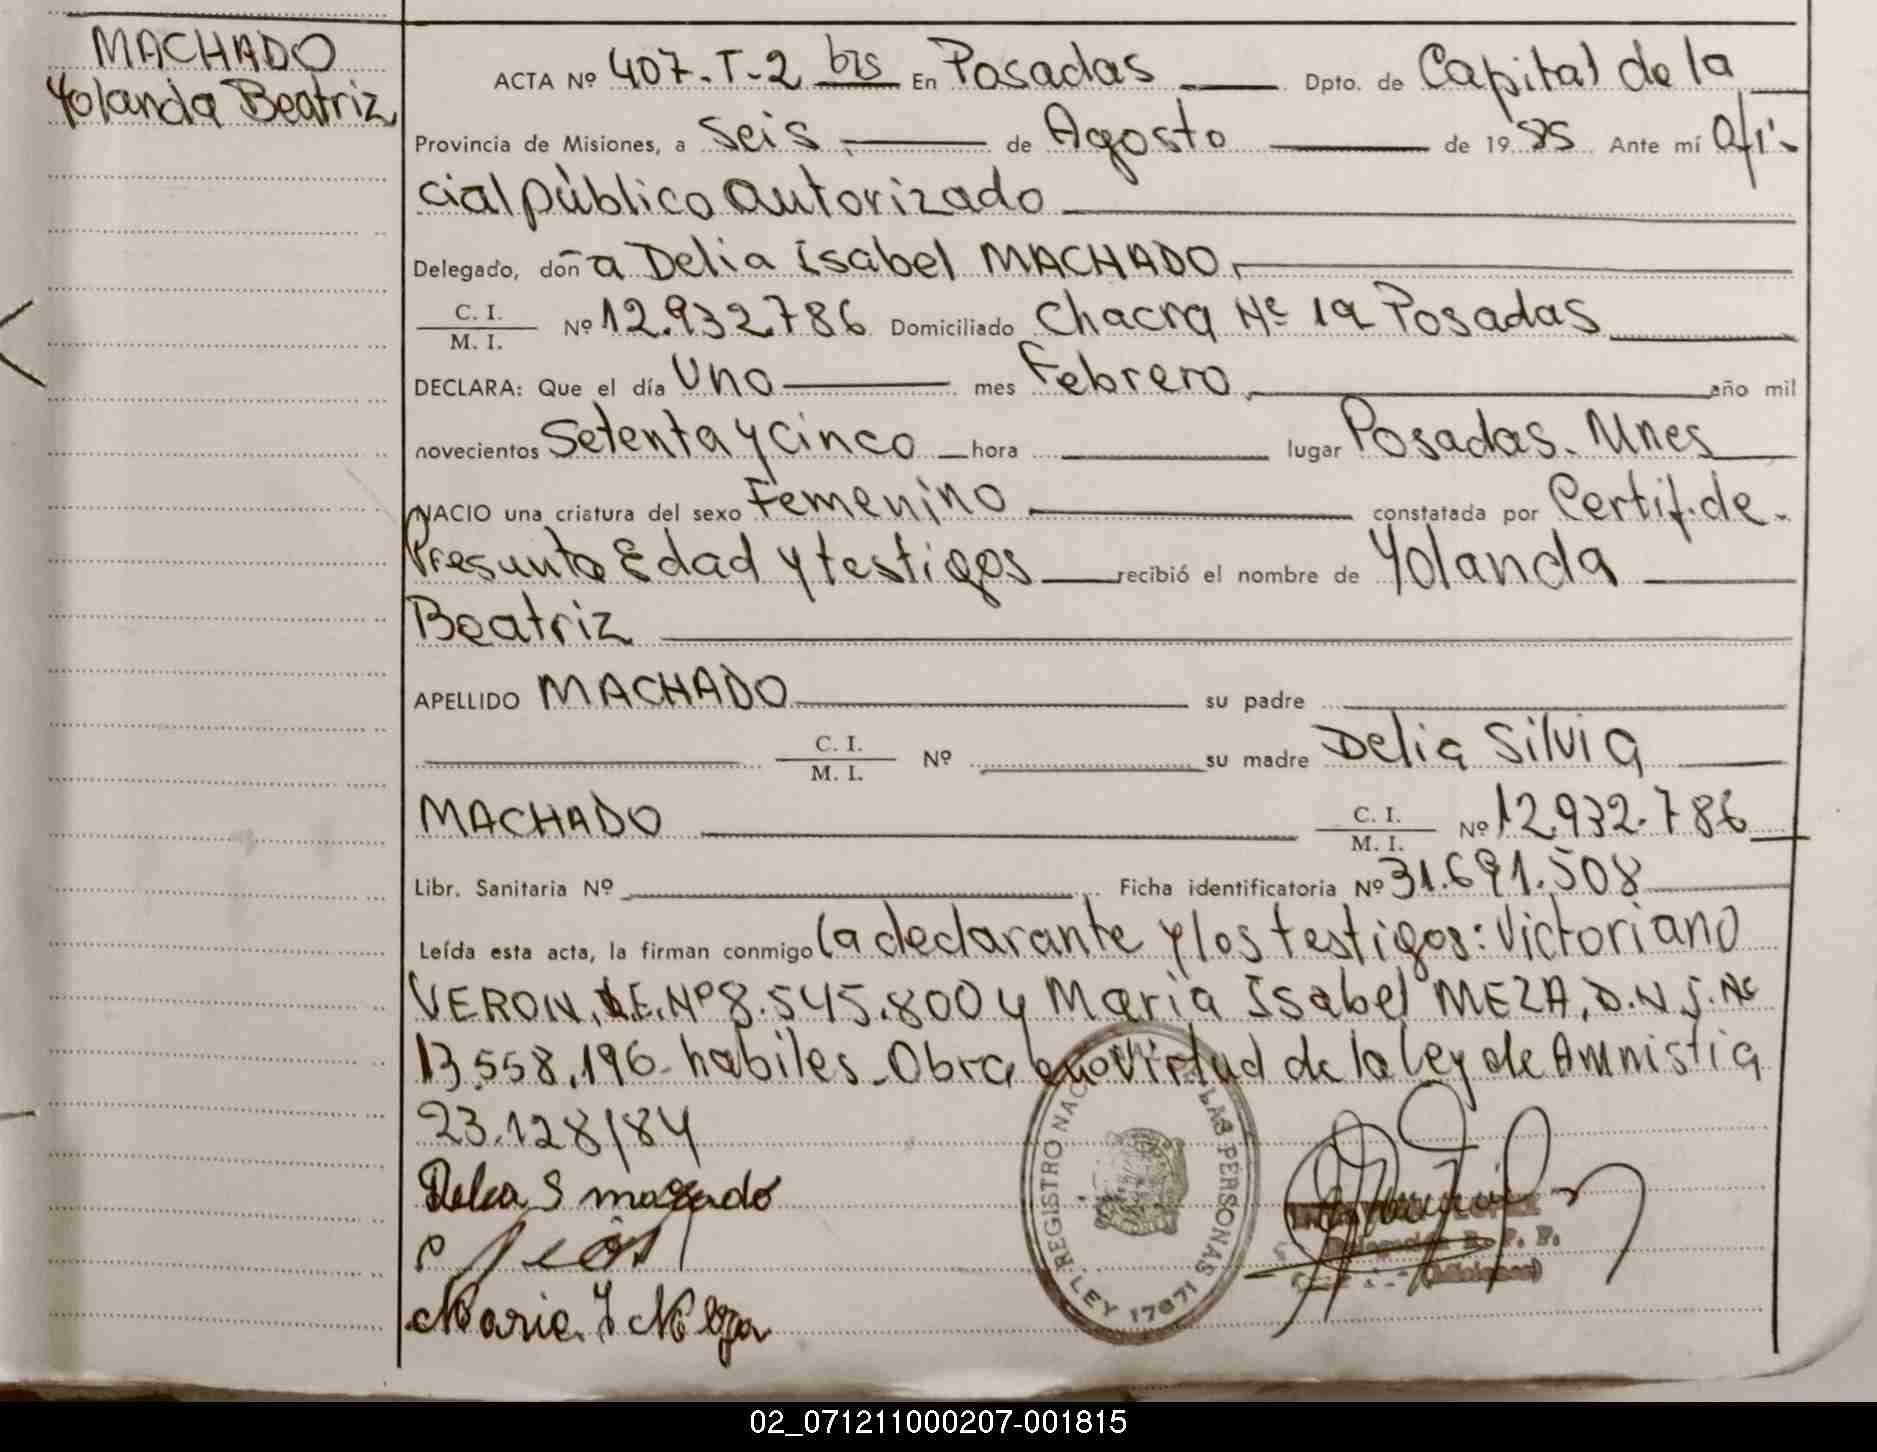 MACHADO
Yolanda Beatriz
ACTA Nº 407-T-2 bis En Posadas Dpto. de Capital de la
Provincia de Misiones, a Seis de Agosto de 19 85 Ante mí Ofi-
cial público autorizado
Delegado, don a Delia Isabel MACHADO
C. I. / M. I. Nº 12.932.786 Domiciliado Chacra Nº 19 Posadas
DECLARA: Que el día Uno mes Febrero año mil
novecientos Setenta y cinco hora lugar Posadas. Mnes
NACIO una criatura del sexo Femenino constatada por Certif. de
Presunta Edad y testigos recibió el nombre de Yolanda
Beatriz
APELLIDO MACHADO su padre
C. I. / M. I. Nº su madre Delia Silvia
MACHADO C. I. / M. I. Nº 12.932.786
Libr. Sanitaria Nº Ficha identificatoria Nº 31.691.508
Leída esta acta, la firman conmigo la declarante y los testigos: Victoriano
VERON, L.E. Nº 8.545.800 y Maria Isabel MEZA, D.N.I. Nº
13.558.196 habiles - Obra en virtud de la ley de Amnistia
23.128/84
Delia S machado
Maria I Meza
REGISTRO NACIONAL DE LAS PERSONAS
LEY 17671
Delegación R. P. P.
(Misiones)
02_071211000207-001815